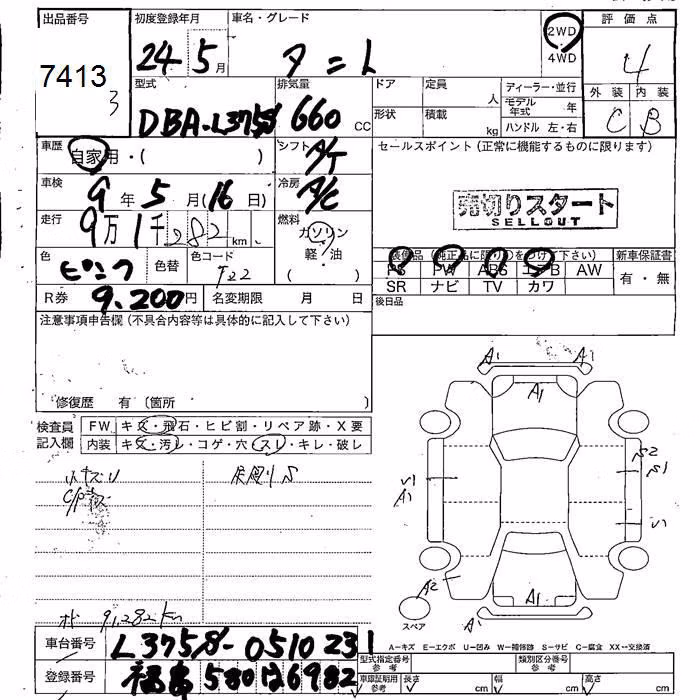 出品番号 初度登録年月 車名・グレード 評価点
7413 24 5月 タ=L 2WD 4
3 4WD
型式 排気量 ドア 定員 人 ディーラー・並行 外装 内装
DBA-L375S 660 CC 形状 積載 kg モデル年式 年 C B
ハンドル 左・右
車歴 自家用・( ) シフト A/T セールスポイント(正常に機能するものに限ります)
車検 9年5月(16日) 冷房 A/C
売切りスタート
SELLOUT
走行 9万1千282km 燃料 ガソリン
軽・油
( )
色 ピンク 色替 色コード T22
装備品(純正品に限り○をつけて下さい) 新車保証書
PS PW ABS エアB AW 有・無
SR ナビ TV カワ
R券 9.200円 名変期限 月 日 後日品
注意事項申告欄(不具合内容等は具体的に記入して下さい)
修復歴 有(箇所 )
検査員記入欄 FW キズ・飛石・ヒビ割・リペア跡・X要
内装 キズ・汚レ・コゲ・穴・スレ・キレ・破レ
A1 A1
A1
S2
S1
S1
A1
A2
A1
A1
スペア
91282km
A=キズ E=エクボ U=凹み W=補修跡 S=サビ C=腐食 XX=交換済
車台番号 L375S-0510231
型式指定番号 参考 類別区分番号 参考
登録番号 580 は 6982
車庫証明用 参考 長さ cm 幅 cm 高さ cm